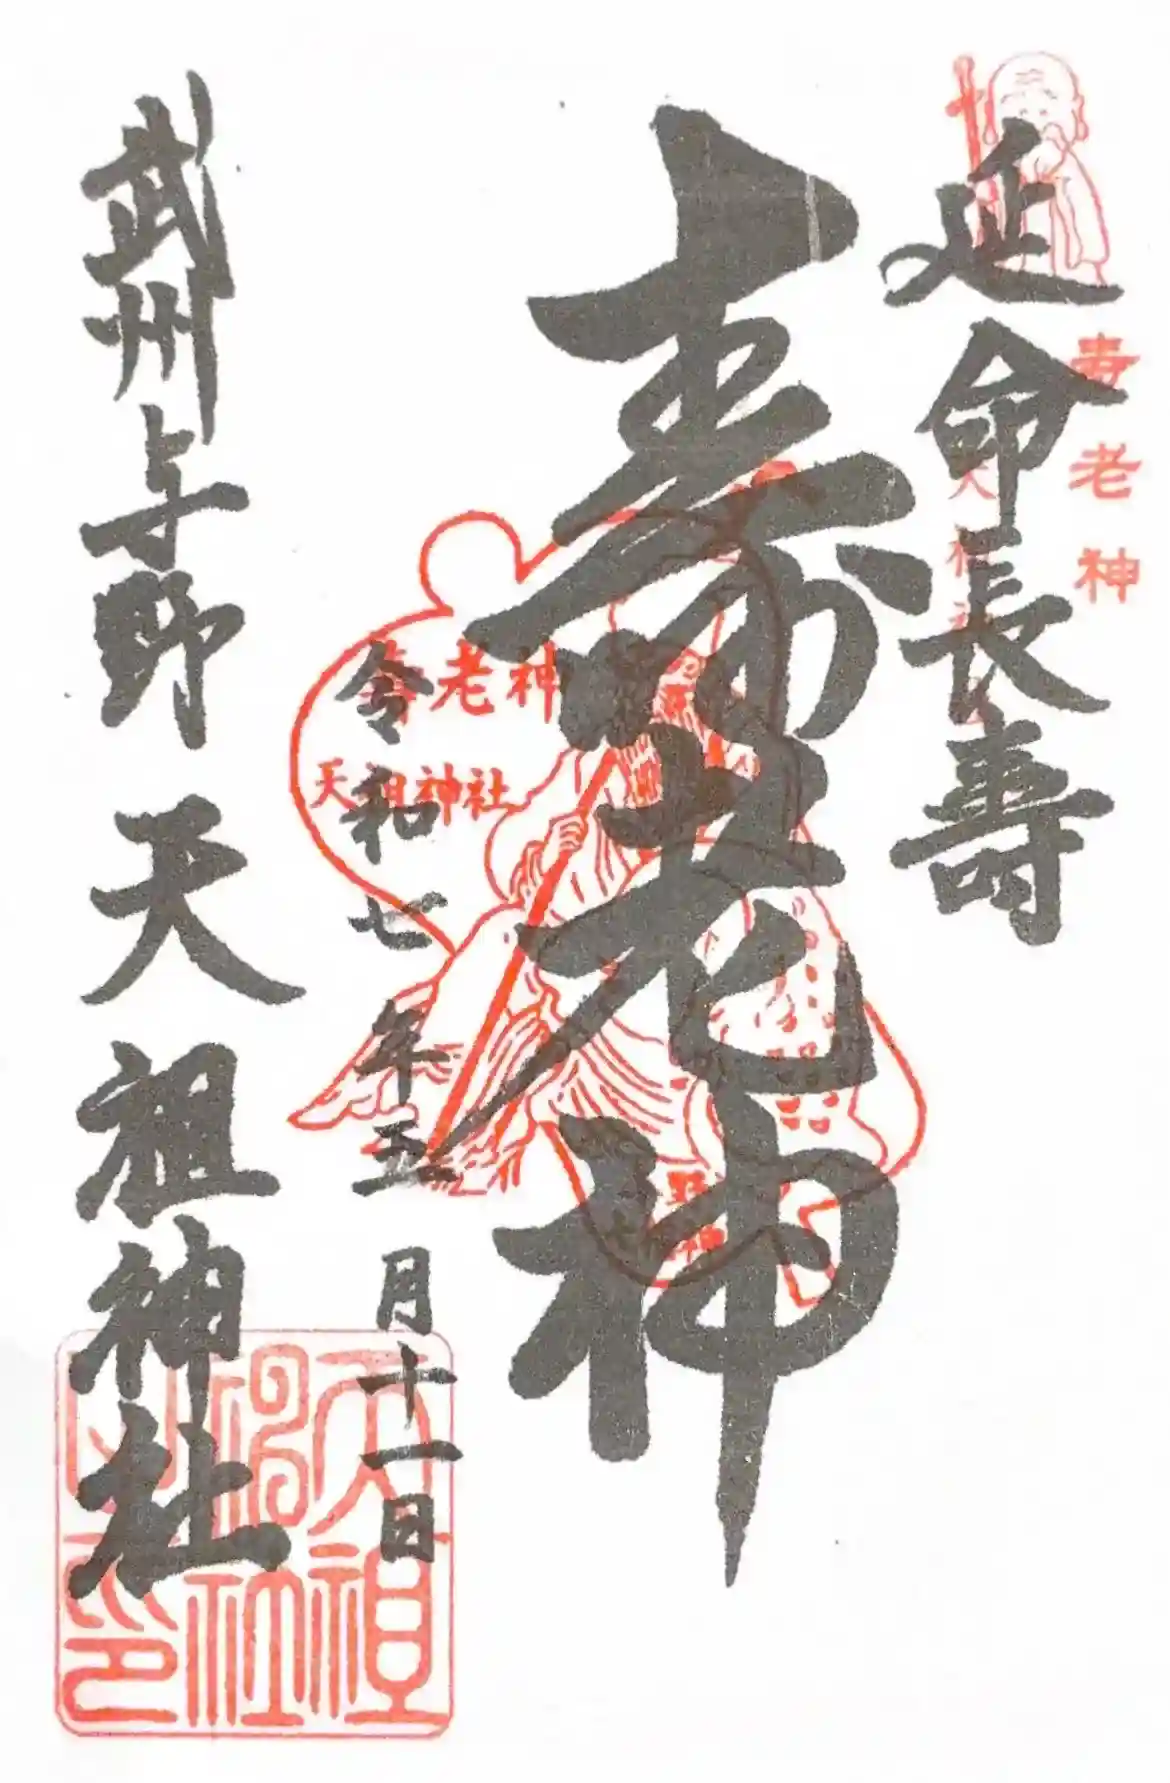 延命長壽
寿老神
寿老神
令和七年五月十一日
武州与野 天祖神社
老神
天祖神社
天祖
社
印